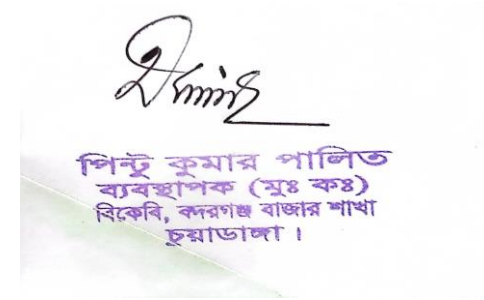 পিন্টু কুমার পালিত
ব্যবস্থাপক (মুঃ কঃ)
বিকেবি, বদরগঞ্জ বাজার শাখা
চুয়াডাঙ্গা ।